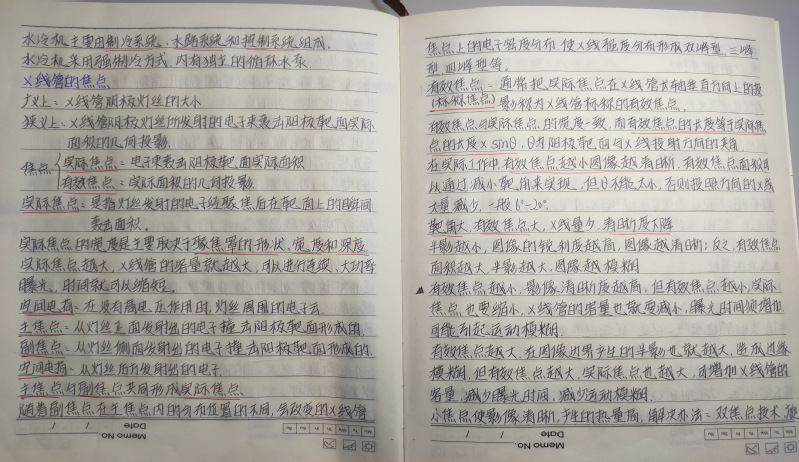 水冷机主要由制冷系统、水路系统和控制系统组成.
水冷机采用强制冷方式,内有独立的循环水泵.
X线管的焦点
广义上:X线管阴极灯丝的大小
狭义上:X线管阴极灯丝所发射的电子束轰击阳极靶面实际
面积的几何投影.
焦点
实际焦点:电子束轰击阳极靶面实际面积
有效焦点:实际面积的几何投影.
实际焦点:是指灯丝发射的电子经聚焦后在靶面上的瞬间
轰击面积.
实际焦点的宽度是主要取决于聚焦罩的形状、宽度和深度
实际焦点越大,X线管的容量就越大,可以进行连续、大功率
曝光,时间就可以缩短.
空间电荷:在没有高电压作用时,灯丝周围的电子云
主焦点:从灯丝正面发射出的电子撞击阳极靶面形成的.
副焦点:从灯丝侧面发射出的电子撞击阳极靶面形成的.
空间电荷:从灯丝后方发射出的电子.
主焦点与副焦点共同形成实际焦点.
随着副焦点在主焦点内的分布位置的不同,会改变的X线管
Memo No.
Date / /
Mo Tu We Th Fr Sa Su
焦点上的电子密度分布,使X线强度分布形成双峰型,三峰
型,四峰型等.
有效焦点:通常把实际焦点在X线管长轴垂直方向上的投
(标称焦点) 影称为X线管标称的有效焦点.
有效焦点与实际焦点的宽度一致,而有效焦点的长度等于实际焦
点的长度×sinθ,θ为阳极靶面与X线投射方向的夹角.
在实际工作中,有效焦点越小图像越清晰,有效焦点面积可
以通过减小靶角来实现,但θ不能太小,否则投照方向的X线
大量减少,一般6°-20°.
靶角大,有效焦点大,X线量少,清晰度下降
半影越小,图像的锐利度越高,图像越清晰;反之,有效焦点
面积越大,半影越大,图像越模糊
▲有效焦点越小,影像清晰度越高,但有效焦点越小,实际
焦点也要缩小,X线管的容量也就要减小,曝光时间须增加,
可能引起运动模糊.
有效焦点越大,在图像边界产生的半影也就越大,造成边缘
模糊,但有效焦点越大,实际焦点也越大,可增加X线管的
容量,减少曝光时间,减少运动模糊.
小焦点使影像清晰,产生的热量高,解决办法:双焦点技术
Memo No.
Date / /
Mo Tu We Th Fr Sa Su